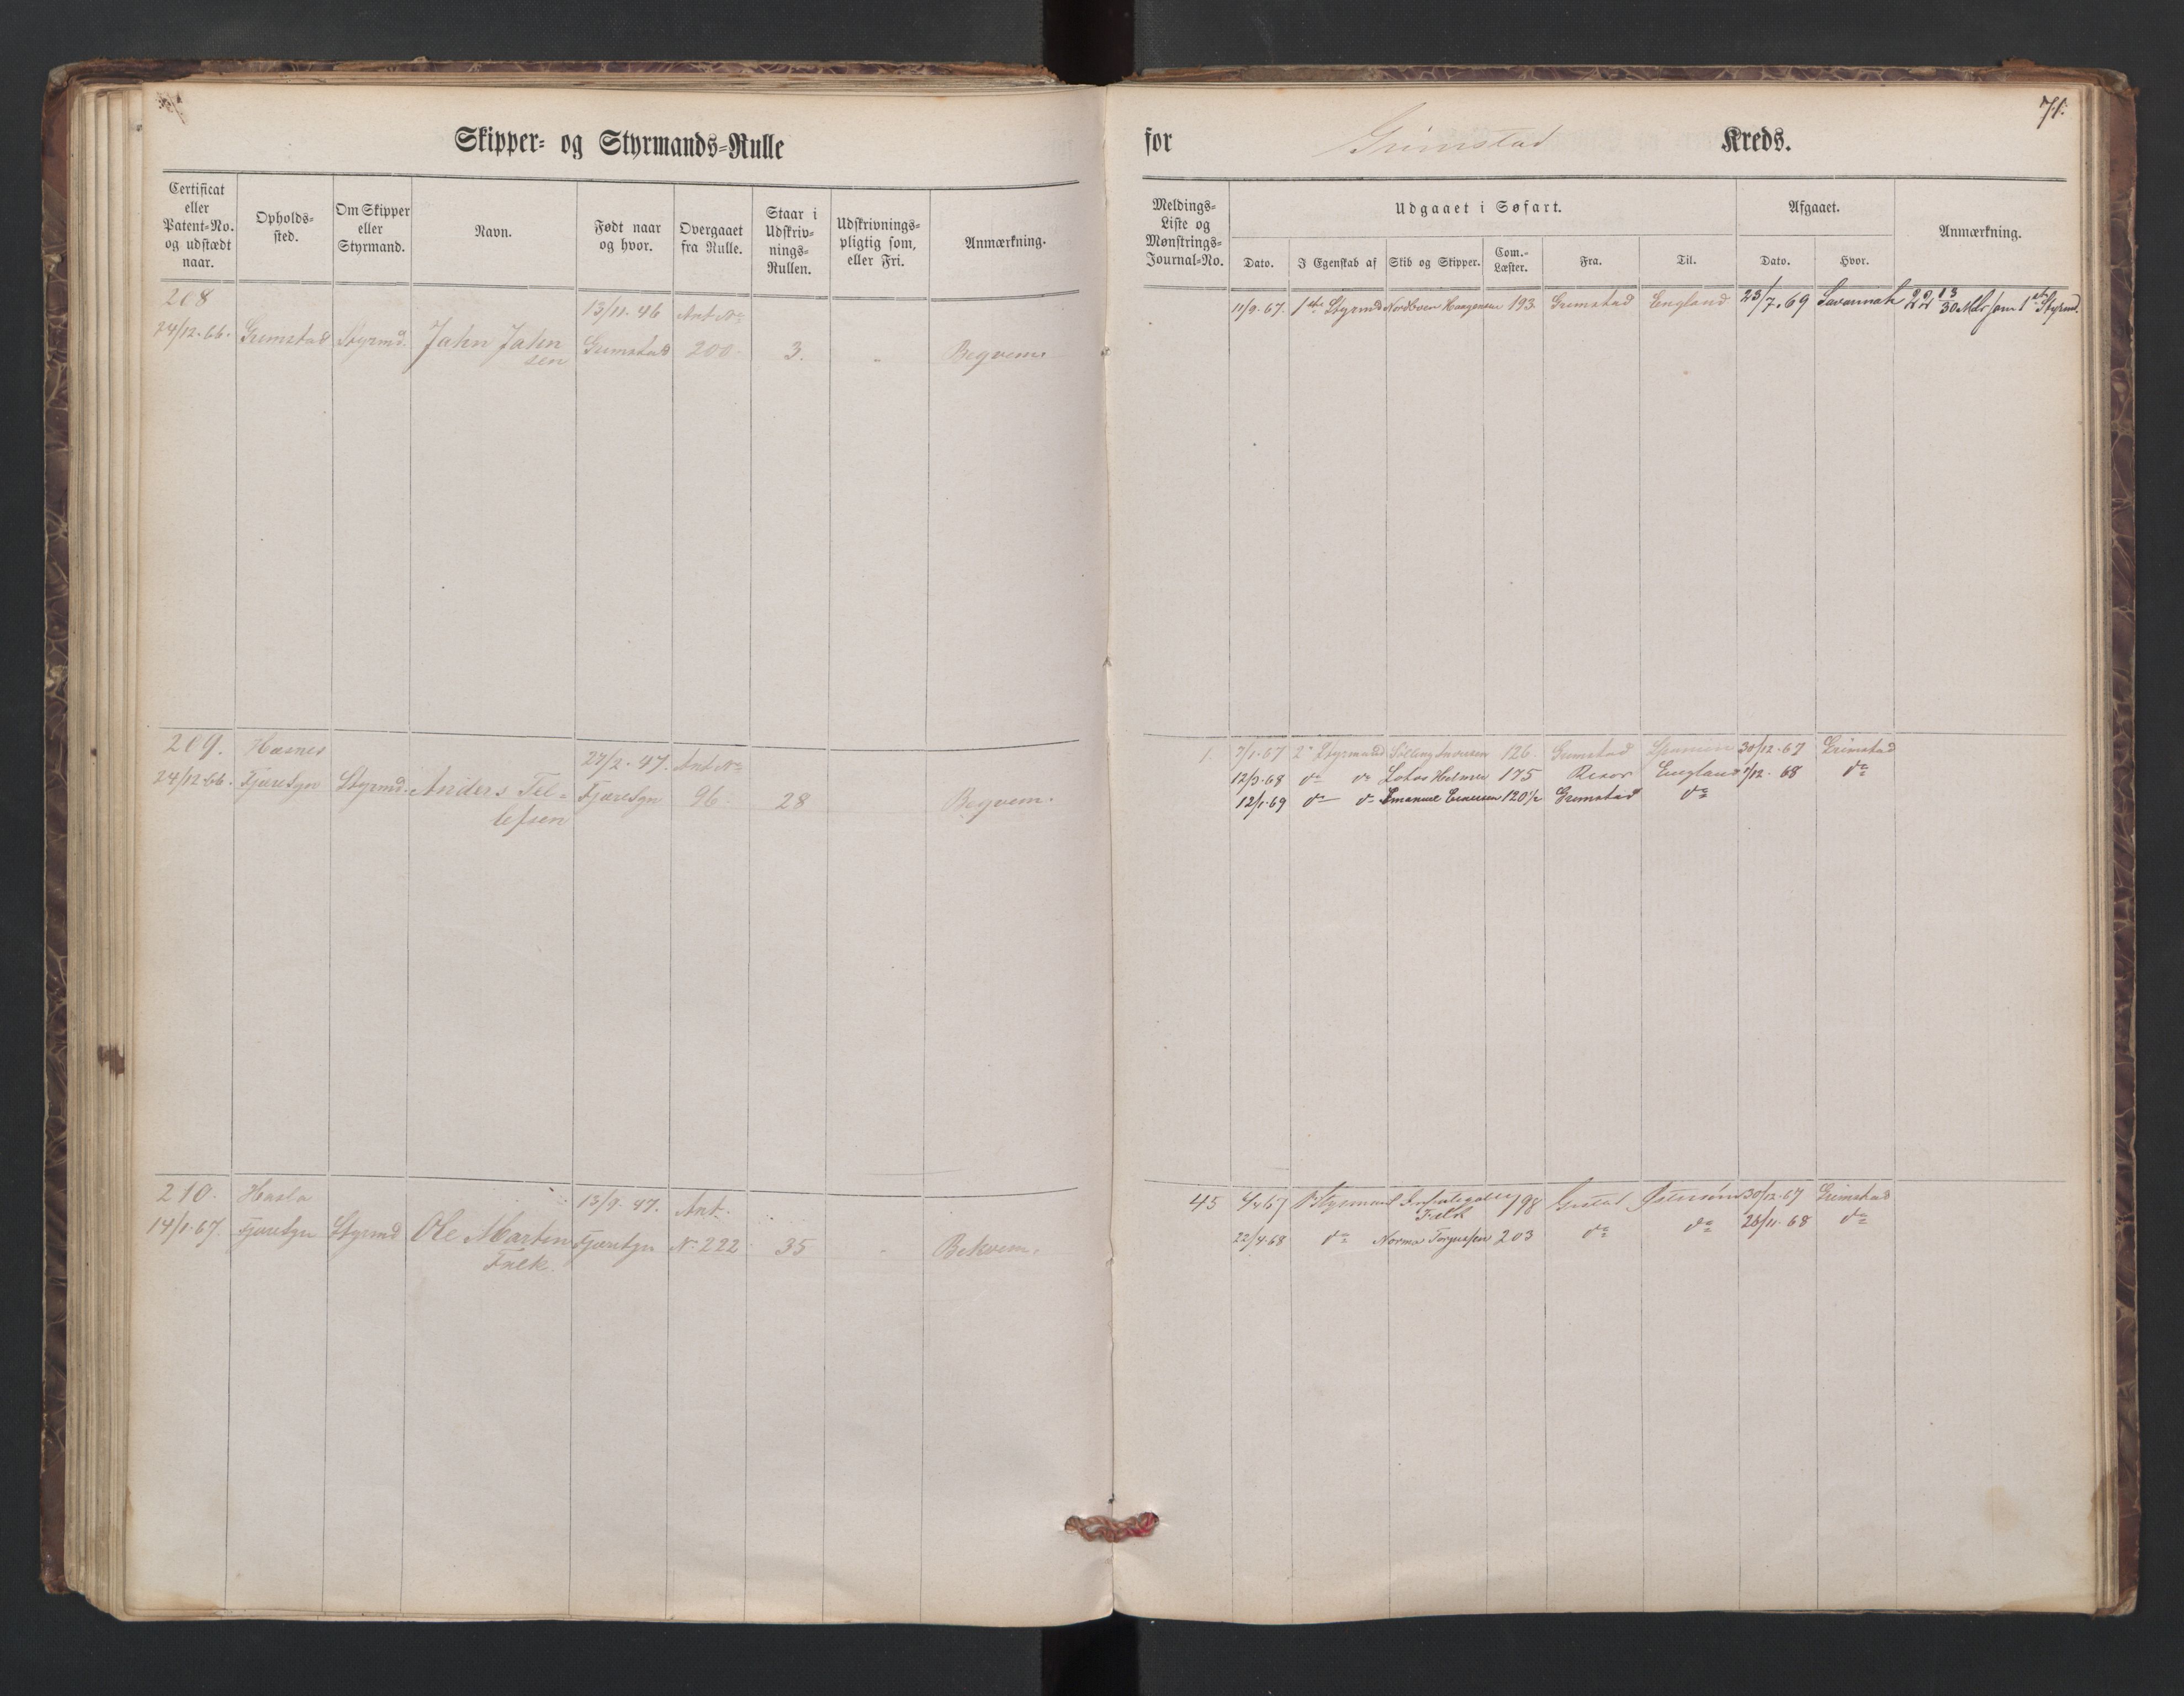 71.
Skipper- og Styrmands-Rulle for Grimstad Kreds.
Certificat eller Patent-No. og udstædt naar.
Opholds-sted.
Om Skipper eller Styrmand.
Navn.
Født naar og hvor.
Overgaaet fra Rulle.
Staar i Udskriv-nings-Rullen.
Udskrivnings-pligtig som, eller Fri.
Anmærkning.
Meldings-Liste og Mønstrings-Journal-No.
Udgaaet i Søfart.
Dato.
I Egenskab af
Skib og Skipper.
Com.-Læster.
Fra.
Til.
Afgaaet.
Dato.
Hvor.
Anmærkning.
208 13/11. 46 Ant No
24/12. 66. Grimstad Styrmd. Jahn Jahn Grimstad 200 3. Beqvem.
sen
11/9. 67. 1ste Styrmd Nordboen Haagensen 193. Grimstad England 23/7. 69 Savannah 22 13/30 Mdr som 1ste Styrmd.
209. Hasnes 27/2. 47. Ant No
24/12. 66. Fjæresgn Styrmd. Anders Tel= Fjæresgn 96. 28 Beqvem.
lefsen
1. 7/1. 67 2n Styrmand 126. Grimstad 30/12. 67 Grimstad
12/3. 68 do do Lotos 175 Risør England 1/12. 68 do
12/1. 69 do do Emanuel 120 1/2 Grimstad do
210. Hasla 13/9. 47. Ant.
14/1. 67. Fjæresgn Styrmd Ole Martin Fjæresgn No 222 35 Bekvem.
Falk.
45 Styrmand 198 Østersøen 30/12. 67 Grimstad
Falk
22/4. 68 do Norma Torjussen 203 do do 26/11. 68 do